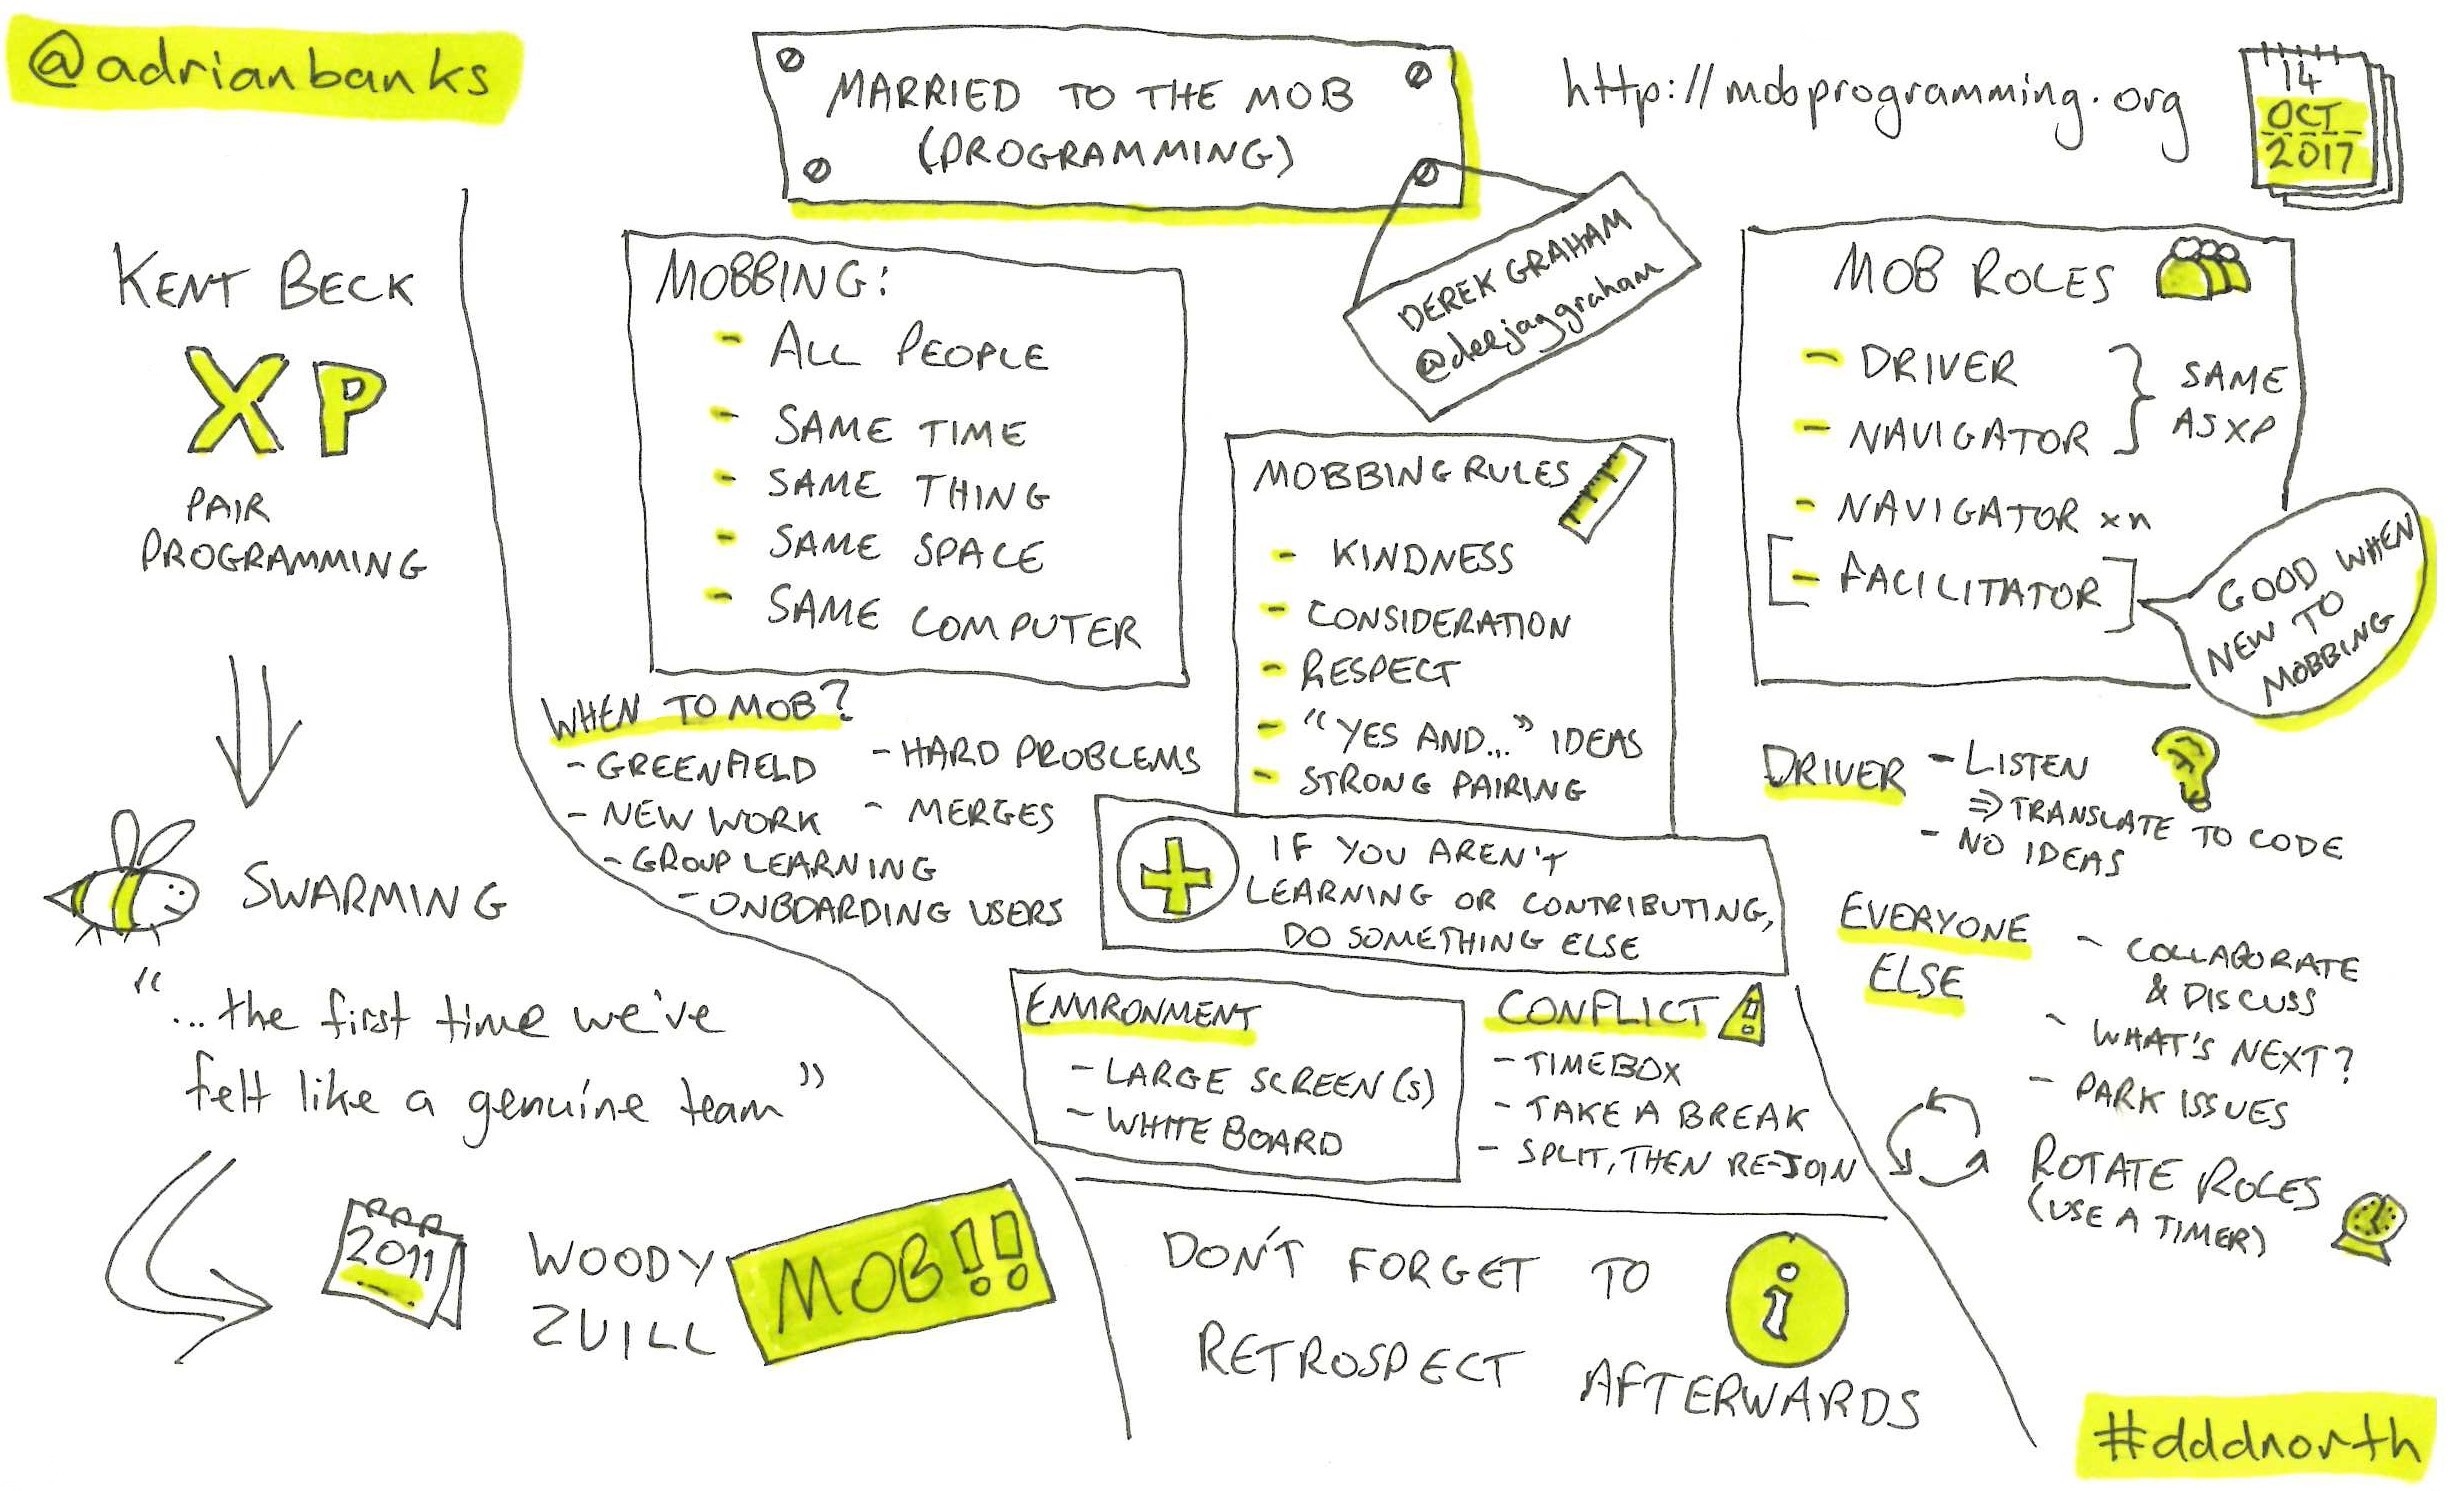 @adrianbanks
MARRIED TO THE MOB
(PROGRAMMING)
DEREK GRAHAM
@deejaygraham
http://mobprogramming.org
14
OCT
2017
KENT BECK
XP
PAIR
PROGRAMMING
SWARMING
“...the first time we've
felt like a genuine team”
2011
WOODY
ZUILL
MOB!!
MOBBING:
- ALL PEOPLE
- SAME TIME
- SAME THING
- SAME SPACE
- SAME COMPUTER
WHEN TO MOB?
- GREENFIELD
- NEW WORK
- GROUP LEARNING
- ONBOARDING USERS
- HARD PROBLEMS
- MERGES
MOBBING RULES
- KINDNESS
- CONSIDERATION
- RESPECT
- “YES AND...” IDEAS
- STRONG PAIRING
IF YOU AREN'T
LEARNING OR CONTRIBUTING,
DO SOMETHING ELSE
ENVIRONMENT
- LARGE SCREEN(S)
- WHITEBOARD
CONFLICT
- TIMEBOX
- TAKE A BREAK
- SPLIT, THEN RE-JOIN
DON'T FORGET TO
RETROSPECT AFTERWARDS
i
MOB ROLES
- DRIVER
- NAVIGATOR
} SAME
AS XP
- NAVIGATOR xn
[- FACILITATOR]
GOOD WHEN
NEW TO
MOBBING
DRIVER - LISTEN
⇒ TRANSLATE TO CODE
- NO IDEAS
EVERYONE
ELSE
- COLLABORATE
& DISCUSS
- WHAT'S NEXT?
- PARK ISSUES
ROTATE ROLES
(USE A TIMER)
#dddnorth